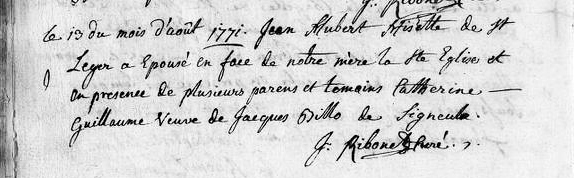 le 13 du mois d'août 1771. Jean Hubert de St
Leger a Epousé en face de notre mère la Ste Eglise et
en presence de plusieurs parens et temains Catherine —
Guillaume Veuve de Jacques Billo de Signeula.
J. Ribonet Curé.